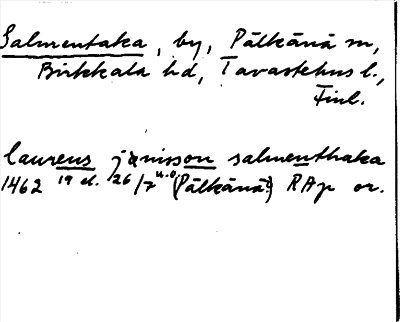 Salmentaka, by, Pälkänä sn,
Birkkala hd, Tavastehus l.,
Finl.
laurens jænisson salmenthaka
1462 19 d. 26/7 u.o. (Pälkänä?) RAp or.